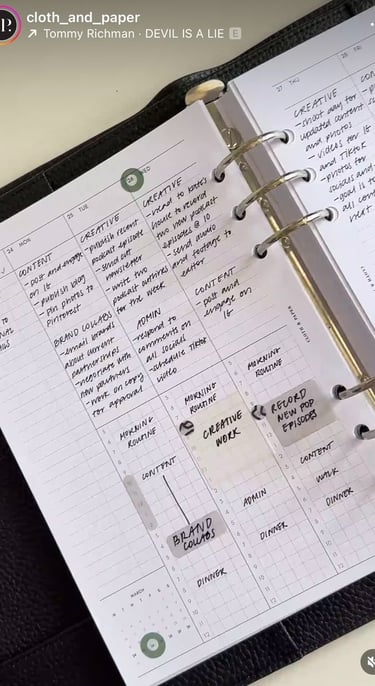 cloth_and_paper
Tommy Richman · DEVIL IS A LIE E
24 MON
CONTENT
- post and engage
on IG
- publish blog
- pin photos to
Pinterest
BRAND COLLABS
- email brands
about current
partnerships
- negotiate with
new partners
- work on copy
for approval
MORNING
ROUTINE
CONTENT
25 TUE
CREATIVE
- publish recent
podcast episode
- send out
newsletter
- write two
podcast outlines
for the week
ADMIN
- respond to
comments on
all socials
- schedule TikTok
video
MORNING
ROUTINE
CREATIVE
WORK
BRAND
COLLABS
DINNER
WED
CREATIVE
house to record
two new podcast
episodes @ 10
- send audio
and footage to
editor
CONTENT
- post and
engage on
IG
MORNING
ROUTINE
RECORD
NEW POD
EPISODES
ADMIN
DINNER
CONTENT
WALK
DINNER
27 THU
CREATIVE
- shoot day for
updated content
and photos
- videos for IG
and TikTok
- photos for
socials and
- goal is to
all con
next
28 FRI
CLOTH & PAPER
MARCH